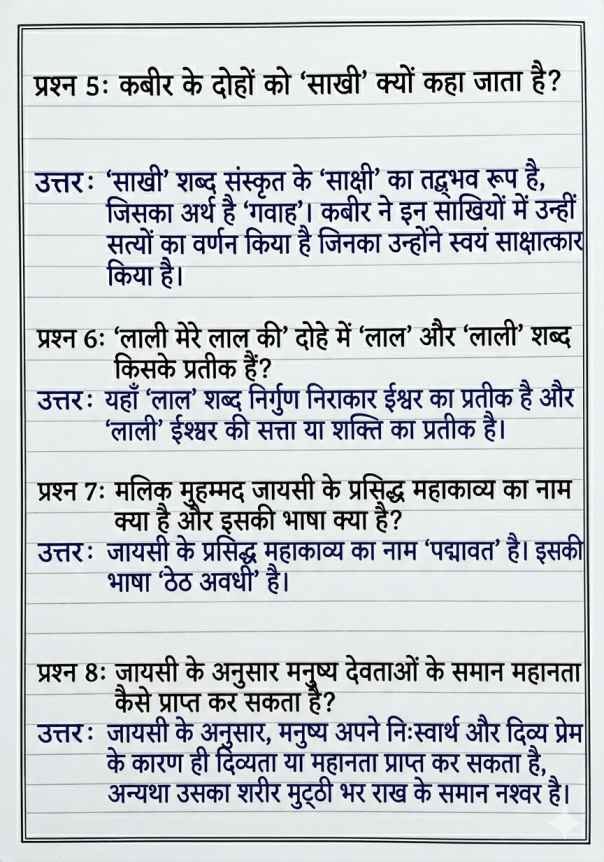 प्रश्न 5: कबीर के दोहों को ‘साखी’ क्यों कहा जाता है?
उत्तर: ‘साखी’ शब्द संस्कृत के ‘साक्षी’ का तद्भव रूप है,
जिसका अर्थ है ‘गवाह’। कबीर ने इन साखियों में उन्हीं
सत्यों का वर्णन किया है जिनका उन्होंने स्वयं साक्षात्कार
किया है।
प्रश्न 6: ‘लाली मेरे लाल की’ दोहे में ‘लाल’ और ‘लाली’ शब्द
किसके प्रतीक हैं?
उत्तर: यहाँ ‘लाल’ शब्द निर्गुण निराकार ईश्वर का प्रतीक है और
‘लाली’ ईश्वर की सत्ता या शक्ति का प्रतीक है।
प्रश्न 7: मलिक मुहम्मद जायसी के प्रसिद्ध महाकाव्य का नाम
क्या है और इसकी भाषा क्या है?
उत्तर: जायसी के प्रसिद्ध महाकाव्य का नाम ‘पद्मावत’ है। इसकी
भाषा ‘ठेठ अवधी’ है।
प्रश्न 8: जायसी के अनुसार मनुष्य देवताओं के समान महानता
कैसे प्राप्त कर सकता है?
उत्तर: जायसी के अनुसार, मनुष्य अपने निःस्वार्थ और दिव्य प्रेम
के कारण ही दिव्यता या महानता प्राप्त कर सकता है,
अन्यथा उसका शरीर मुट्ठी भर राख के समान नश्वर है।